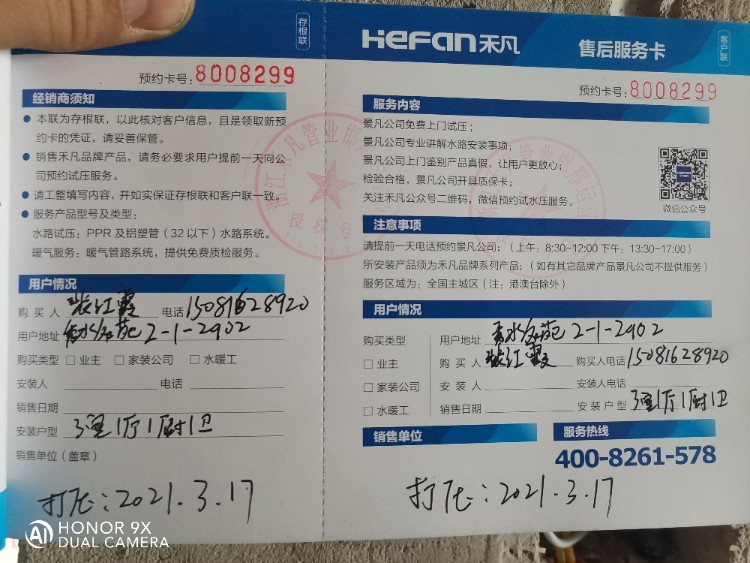 存根联
预约卡号:8008299
经销商须知
本联为存根联,以此核对客户信息,且是领取新预
约卡的凭证,请妥善保管。
销售禾凡品牌产品,请务必要求用户提前一天向公
司预约试压服务。
请工整填写内容,并如实保证存根联和客户联一致。
服务产品型号及类型:
水路试压:PPR 及铝塑管(32 以下)水路系统。
暖气服务:暖气管路系统,提供免费质检服务。
用户情况
购 买 人 张江霞 电话 15081628920
用户地址 苑 2-1-2902
购买类型 □ 业主 □ 家装公司 □ 水暖工
安装人 电话
销售日期
安装户型 3室1厅1厨1卫
销售单位(盖章)
打压:2021.3.17
HeFan禾凡 售后服务卡
客户联
预约卡号:8008299
服务内容
景凡公司免费上门试压;
景凡公司专业讲解水路安装事项;
景凡公司上门鉴别产品真假,让用户更放心;
检验合格,景凡公司开具质保卡;
关注禾凡公众号二维码,微信预约试水压服务。
微信公众号
注意事项
请提前一天电话预约景凡公司:(上午:8:30-12:00 下午:13:30-17:00)
所安装产品须为禾凡品牌系列产品;(如有其它品牌产品景凡公司不提供服务)
服务区域为:全国主城区(注:港澳台除外)
用户情况
购买类型 用户地址 秀水名苑 2-1-2902
□ 业主 购 买 人 张江霞 购买人电话 15081628920
□ 家装公司 安 装 人 安装人电话
□ 水暖工 销售日期 安 装 户 型 3室1厅1厨1卫
销售单位 服务热线
400-8261-578
打压:2021.3.17
浙江禾凡管业邯
授权号
AI HONOR 9X
DUAL CAMERA